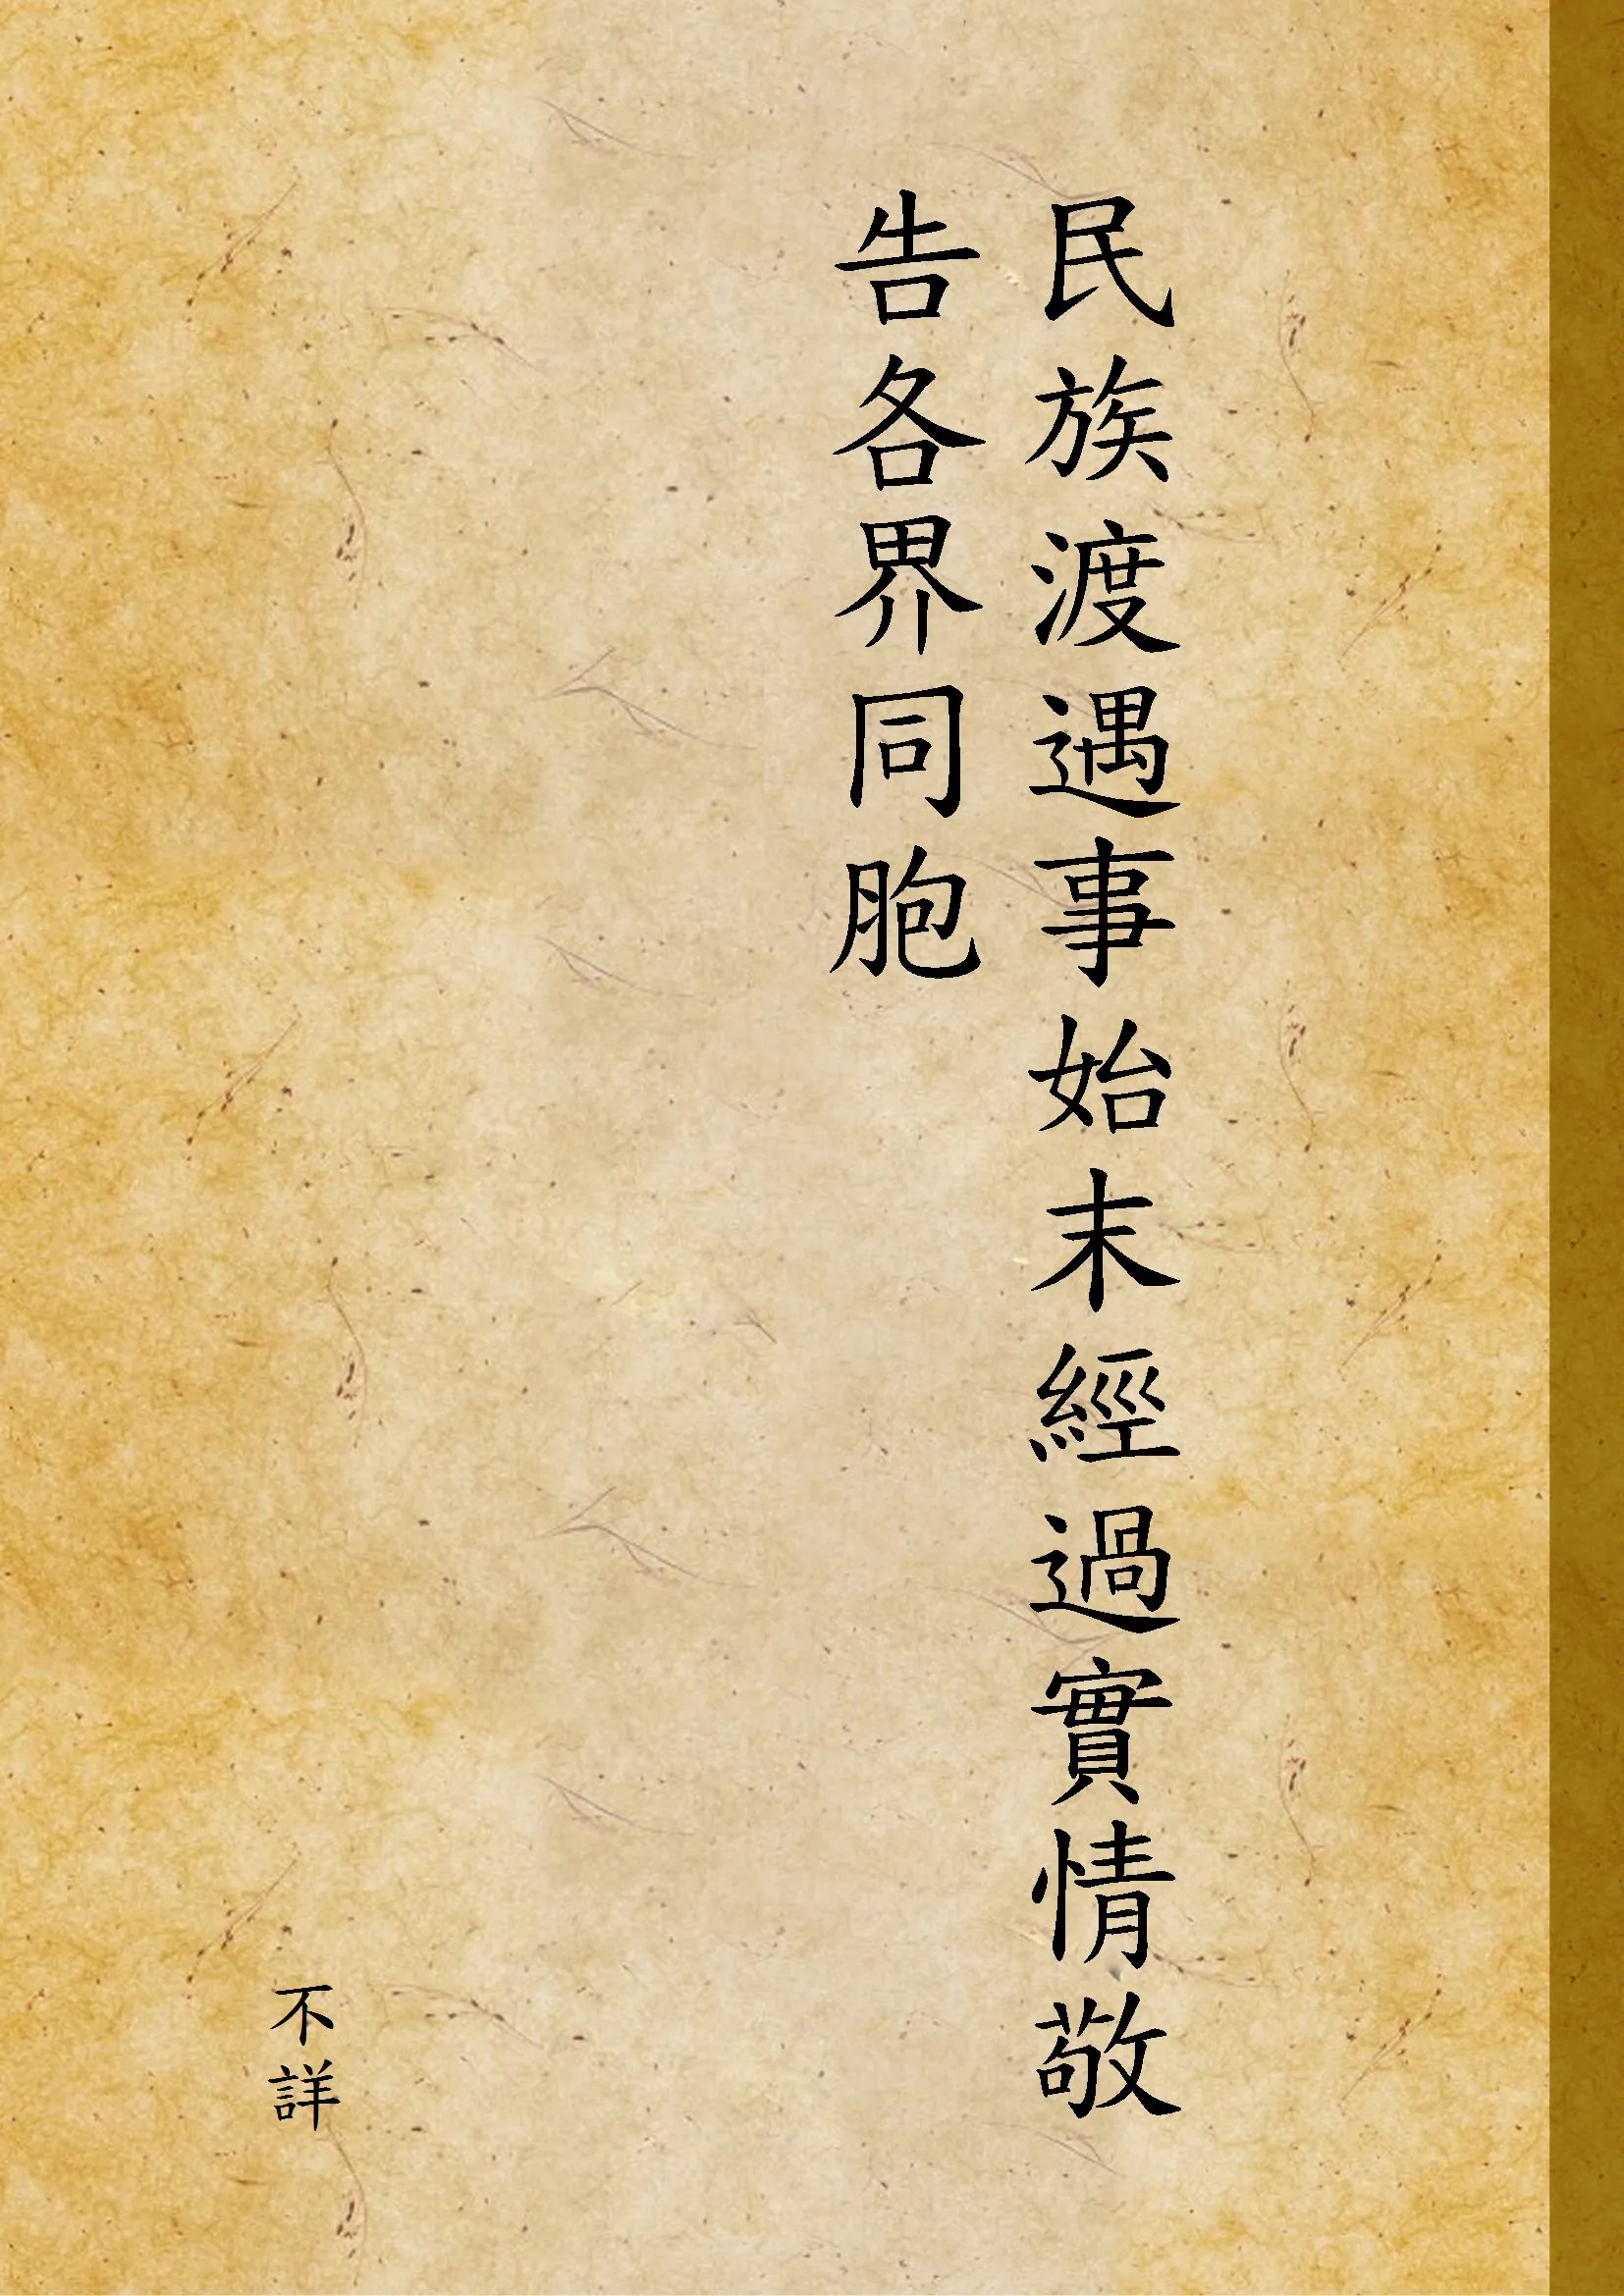 民族渡遇事始末經過實情敬
告各界同胞
不詳